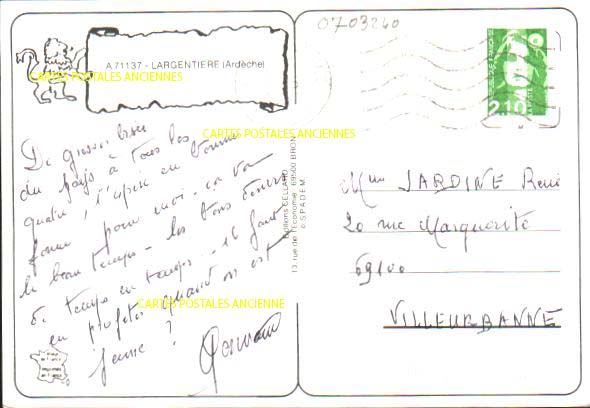 0703240
A 71137 - LARGENTIERE (Ardèche)
CARTES POSTALES ANCIENNES
2,10
CARTES POSTALES ANCIENNES
De grosses bises
du pays à tous les
quatre, j'espère en bonne
forme pour moi - ça va
le beau temps - les bons
de temps en temps - il faut
en profiter quand on est
jeune ?
CARTES POSTALES ANCIENNES
Editions CELLARD
13, rue de l'Economie - 69500 BRON
© SPADEM
Mme JARDINE René
20 rue Marguerite
69100
VILLEURBANNE